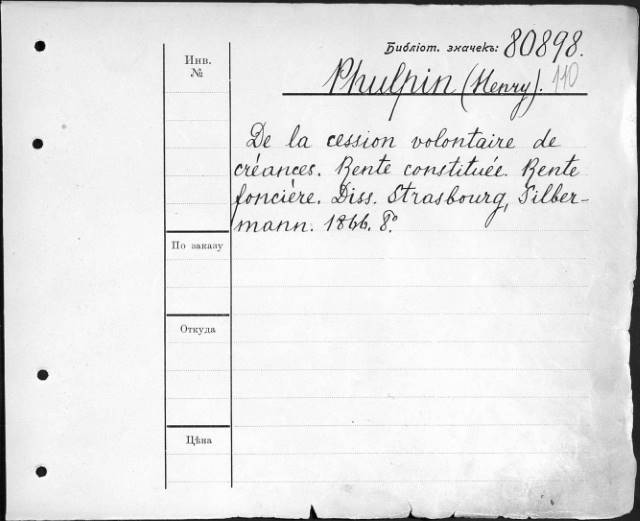 Библіот. значекъ: 80898.
Инв.
№
Phulpin (Henry). 110
De la cession volontaire de
créances. Rente constituée. Rente
foncière. Diss. Strasbourg, Silber-
mann. 1866. 8º
По заказу
Откуда
Цѣна